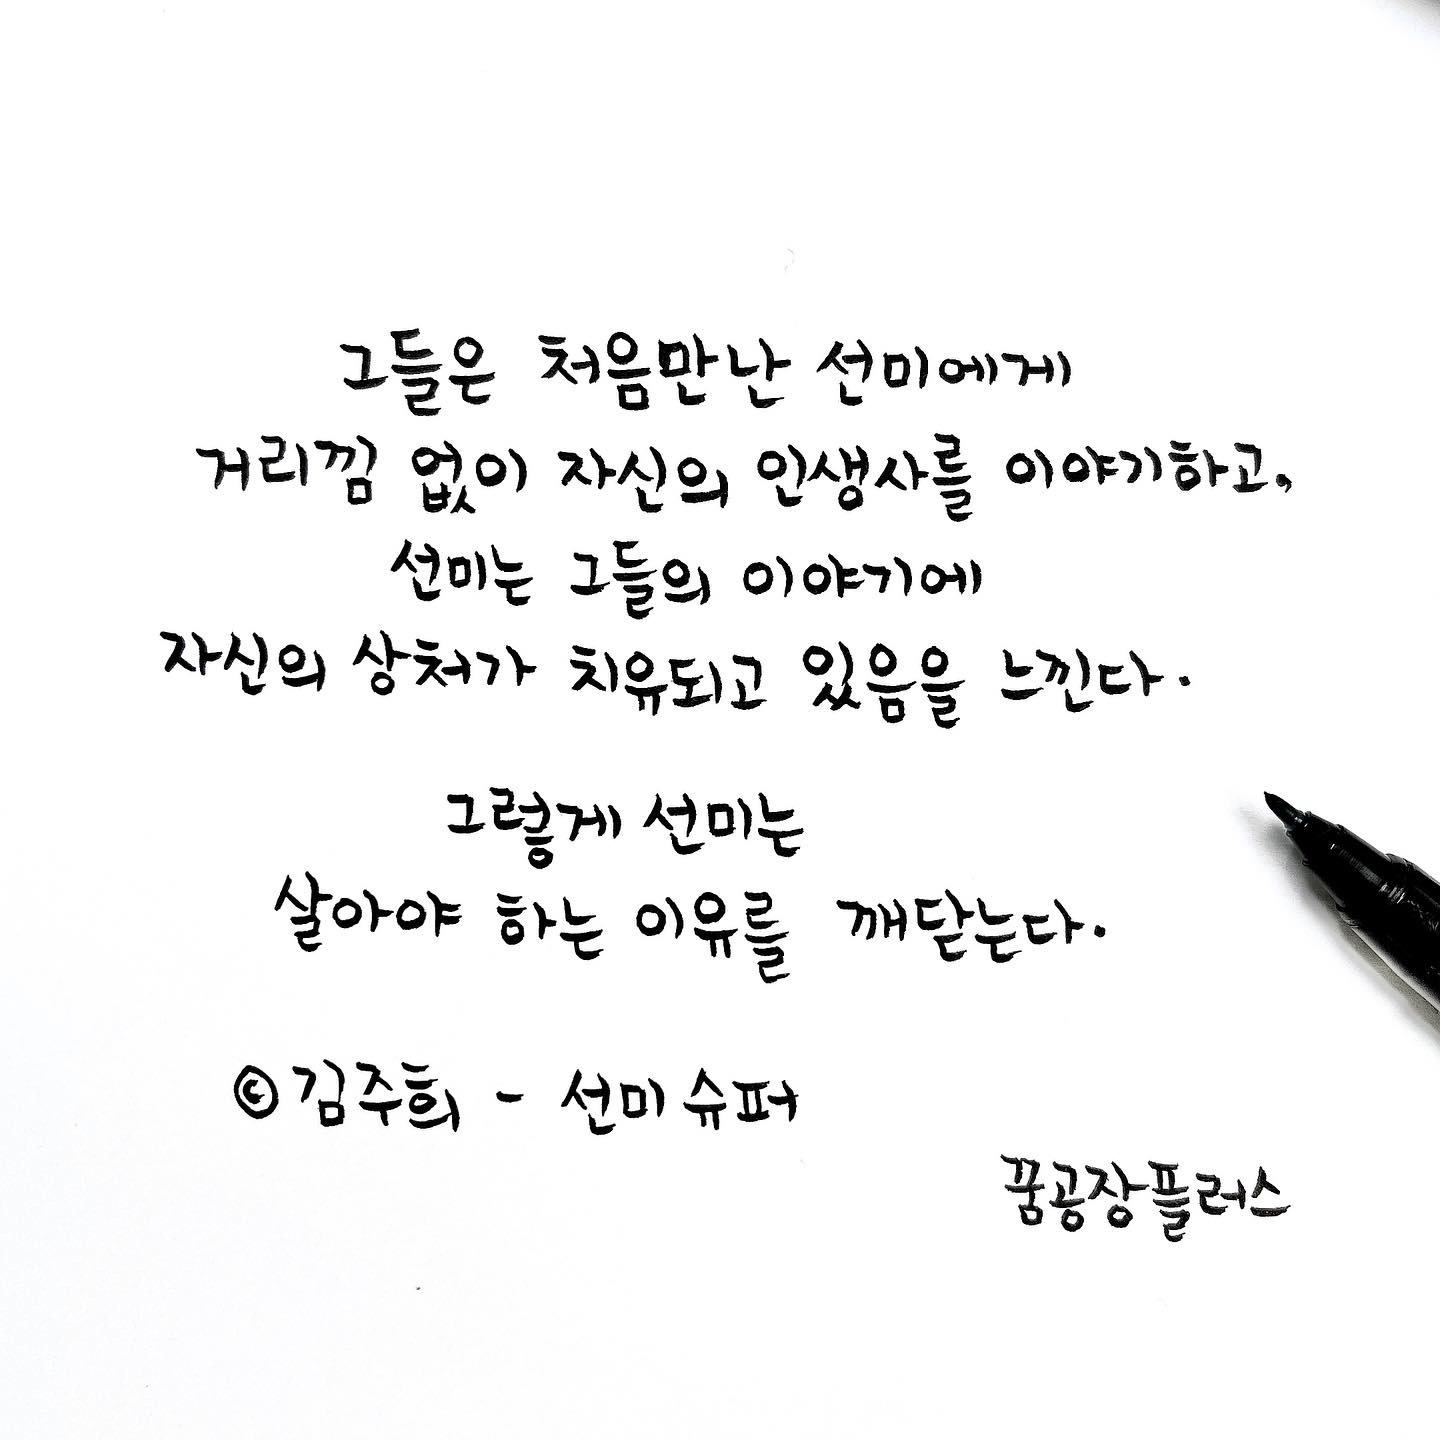 그들은 처음만난 선미에게
거리낌 없이 자신의 인생사를 이야기하고,
선미는 그들의 이야기에
자신의 상처가 치유되고 있음을 느낀다.
그렇게 선미는
살아야 하는 이유를 깨닫는다.
© 김주희 - 선미슈퍼
꿈공장플러스